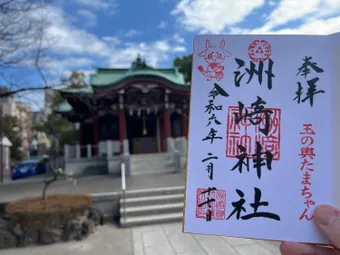 奉拝
玉の輿たまちゃん
洲崎神社
令和六年二月